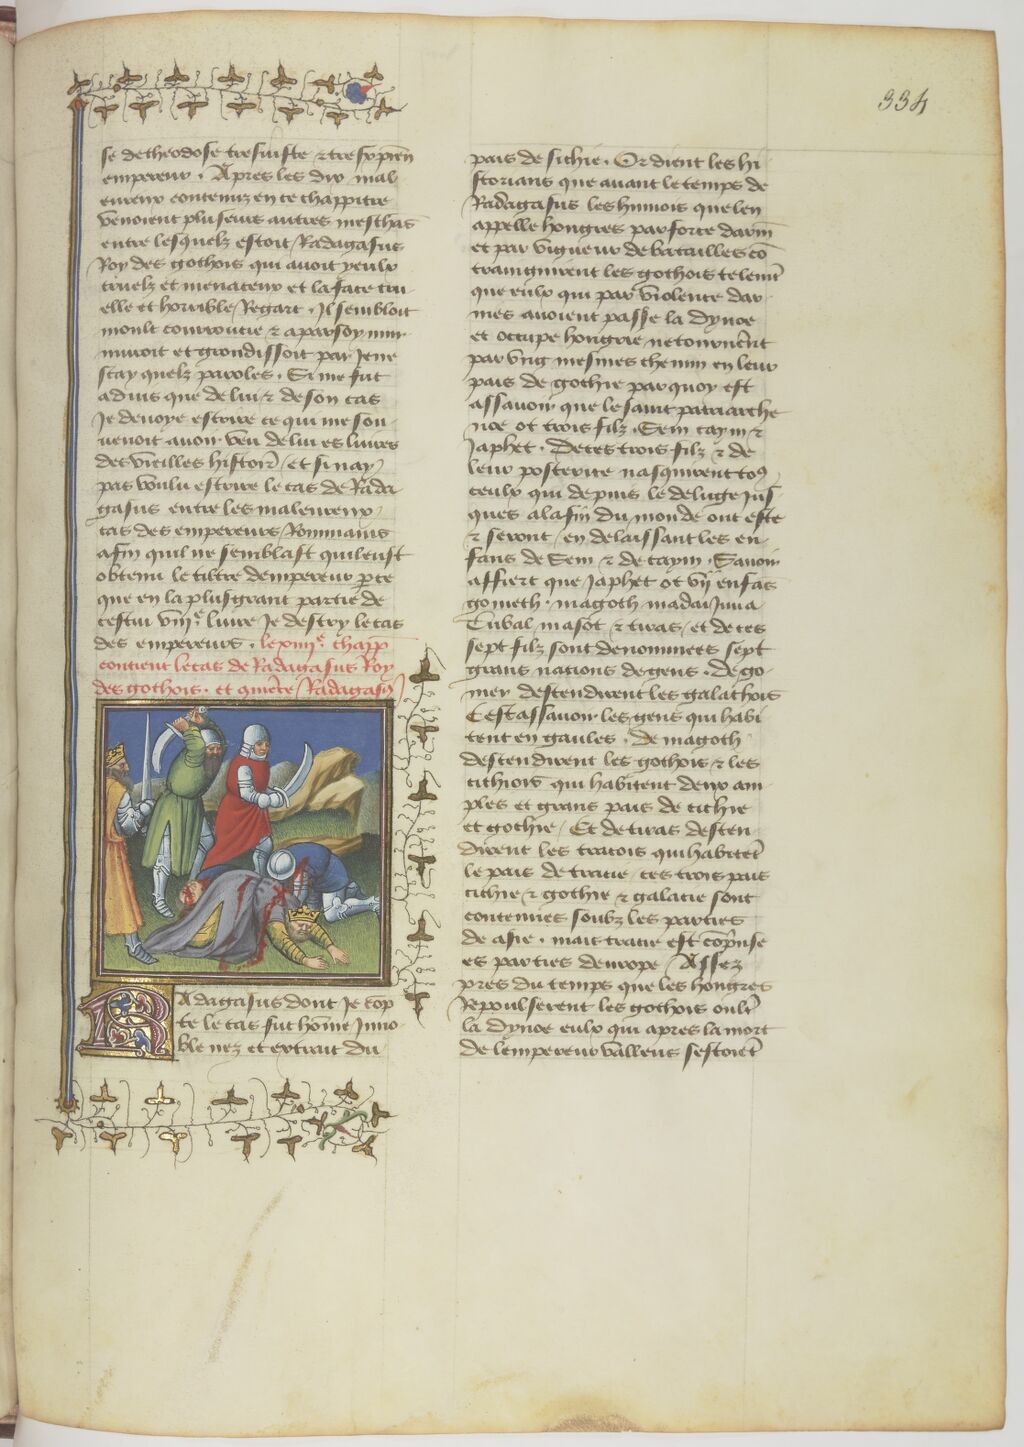 334
se de theodose tresiuste ⁊ tresxpien
empereur . Apres les dix mal
eureux contenuz en ce chappitre
venoient pluseurs autres meschãs
entre lesquelz estoit Radagasus
Roy des gothois qui auoit yeulx
cruelz et menaceux et la face cru
elle et horrible Regart . Il sembloit
moult courroucie ⁊ a par soy mur
muroit et grondissoit par Je ne
scay quelz paroles . Si me fut
aduis que de lui ⁊ de son cas
Je deuoye escrire ce qui me sou
uenoit auoir veu de lui es liures
des vieilles histoir̃ / et si nay
pas voulu escrire le cas de Rada
gasus entre les maleureux
cas des empereurs Rommains
afin quil ne semblast quil eust
obtenu le tiltre dempereur p̱ ce
que en la plusgrant partie de
cestui viij.e liure Je descry le cas
des empereurs . le xiiij.e chapp
contient le cas de Radagasus Roy
des gothois . et cm̃ẽce Radagasus
Radagasus dont Je cop
te le cas fut hõme Inno
ble nez et extrait du
pais de sichie . Or dient les hi
storians que auant le temps de
Radagasus les hunnois que len
appelle hongres par force darm̃
et par vigueur de batailles cõ
traingnirent les gothois telemt̃
que eulx qui par violence dar
mes auoient passe la dynoe
et occupe hongrie ne tournerẽt
par vng mesmes chemin en leur
pais de gothie par quoy est
assauoir que le saint patriarche
noe ot trois filz . Sem caym ⁊
Japhet . De ces trois filz ⁊ de
leur posterite nasquirent tous
ceulx qui depuis le deluge Jus
ques a la fin du monde ont este
⁊ seront / en delaissant les en
fans de Sem ⁊ de caym . Sauoir
affiert que Japhet ot vij enfãs
gometh . magoth madai Juua
Tubal masot ⁊ tiras / et de ces
sept filz sont denommees sept
grans nations de gens . De go
mer descendirent les galathois
Cest assauoir les gens qui habi
tent en gaules . de magoth
descendirent les gothois ⁊ les
cithiois qui habitent deux am
ples et grans pais de cithie
et gothie / Et de tiras descen
dirent les tracois qui habitẽt
le pais de tracie . ces trois pais
cithie ⁊ gothie ⁊ galacie sont
contenues soubz les parties
de asie . mais tracie est cõprise
es parties deurope / Assez
pres du temps que les hongres
Repoulserent les gothois oult̃
la dynoe eulx qui apres la mort
de lempereur vallens sestoiẽt